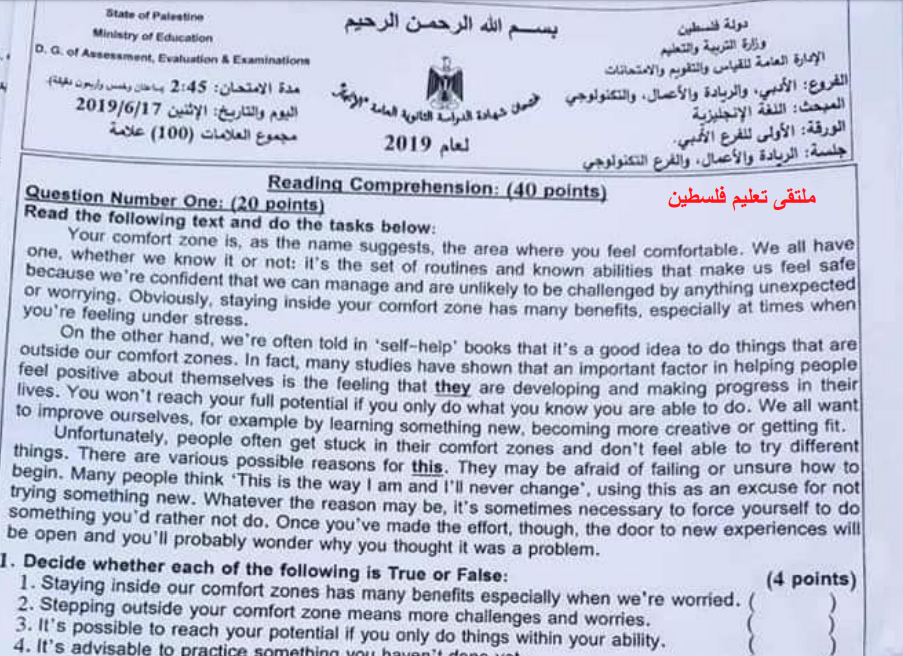 State of Palestine
Ministry of Education
D. G. of Assessment, Evaluation & Examinations
مدة الامتحان: 2:45 (ساعتان وخمس وأربعون دقيقة).
اليوم والتاريخ: الإثنين 2019/6/17
مجموع العلامات (100) علامة
بسم الله الرحمن الرحيم
امتحان شهادة الدراسة الثانوية العامة
لعام 2019
دولة فلسطين
وزارة التربية والتعليم
الإدارة العامة للقياس والتقويم والامتحانات
الفروع: الأدبي، والريادة والأعمال، والتكنولوجي
المبحث: اللغة الإنجليزية
الورقة: الأولى للفرع الأدبي.
جلسة: الريادة والأعمال، والفرع التكنولوجي
Reading Comprehension: (40 points)
ملتقى تعليم فلسطين
Question Number One: (20 points)
Read the following text and do the tasks below:
Your comfort zone is, as the name suggests, the area where you feel comfortable. We all have
one, whether we know it or not: it's the set of routines and known abilities that make us feel safe
because we're confident that we can manage and are unlikely to be challenged by anything unexpected
or worrying. Obviously, staying inside your comfort zone has many benefits, especially at times when
you're feeling under stress.
On the other hand, we're often told in 'self-help' books that it's a good idea to do things that are
outside our comfort zones. In fact, many studies have shown that an important factor in helping people
feel positive about themselves is the feeling that they are developing and making progress in their
lives. You won't reach your full potential if you only do what you know you are able to do. We all want
to improve ourselves, for example by learning something new, becoming more creative or getting fit.
Unfortunately, people often get stuck in their comfort zones and don't feel able to try different
things. There are various possible reasons for this. They may be afraid of failing or unsure how to
begin. Many people think 'This is the way I am and I'll never change', using this as an excuse for not
trying something new. Whatever the reason may be, it's sometimes necessary to force yourself to do
something you'd rather not do. Once you've made the effort, though, the door to new experiences will
be open and you'll probably wonder why you thought it was a problem.
1. Decide whether each of the following is True or False: (4 points)
1. Staying inside our comfort zones has many benefits especially when we're worried. ( )
2. Stepping outside your comfort zone means more challenges and worries. ( )
3. It's possible to reach your potential if you only do things within your ability. ( )
4. It's advisable to practice something you haven't done yet. ( )